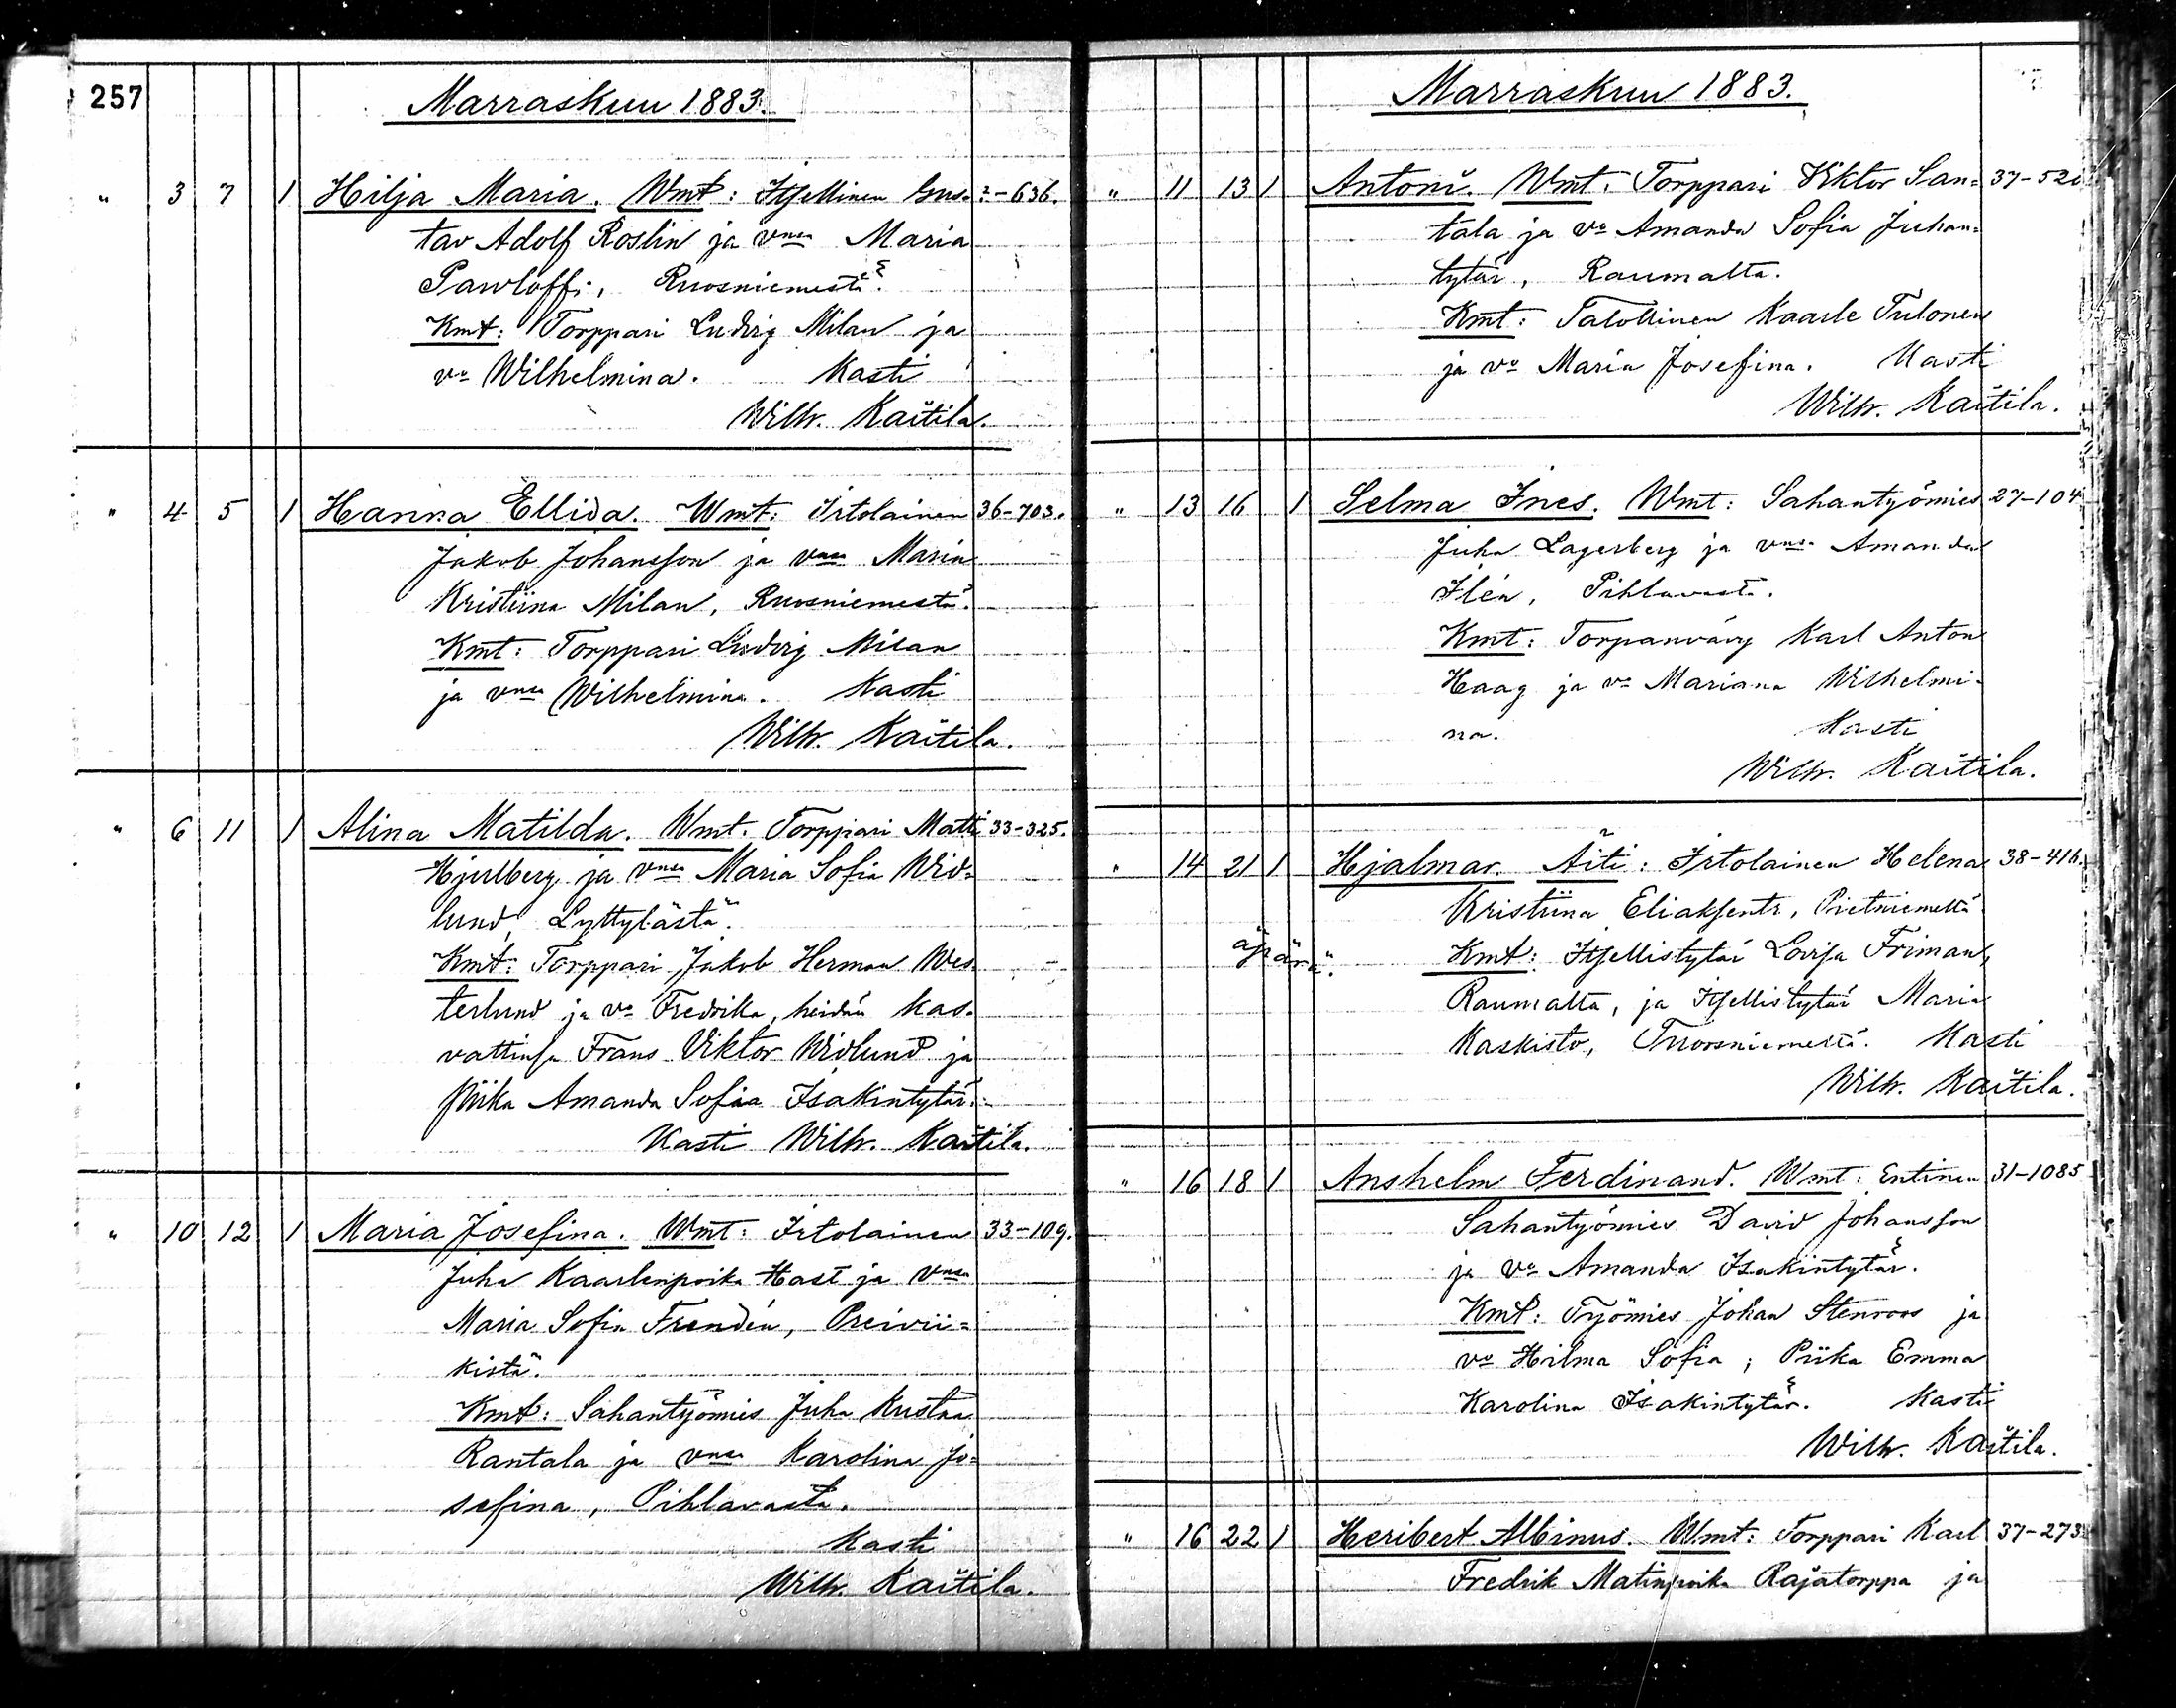 257
Marraskuu 1883.
" 3 7 1 Hilja Maria. Wmt: Itsellinen Gus= ?-636.
tav Adolf Roslin ja vnsa Maria
Pawloff, Ruosniemestä.
Kmt: Torppari Ludvig Milan ja
vo Wilhelmina. Kasti
Wilh. Kaitila.
" 4 5 1 Hanna Ellida. Wmt: Irtolainen 36-703.
Jakob Johansson ja vnsa Maria
Kristiina Milan, Ruosniemestä.
Kmt: Torppari Ludvig Milan
ja vnsa Wilhelmina. Kasti
Wilh. Kaitila.
" 6 11 1 Alina Matilda. Wmt. Torppari Matti 33-325.
Hjulberg ja vnsa Maria Sofia Wid=
lund, Lyttylästä.
Kmt: Torppari Jakob Herman Wes=
terlund ja vo Fredrika, heidän kas=
vattinsa Frans Viktor Widlund ja
piika Amanda Sofia Isakintytär.
Kasti Wilh. Kaitila.
" 10 12 1 Maria Josefina. Wmt: Irtolainen 33-109.
Juha Kaarlenpoika Hast ja vnsa
Maria Sofia Frendén, Preivii=
kistä.
Kmt: Sahantyömies Juha Kustaa
Rantala ja vnsa Karolina Jo=
sefina, Pihlavasta.
Kasti
Wilh. Kaitila.
Marraskuu 1883.
" 11 13 1 Antoni. Wmt: Torppari Viktor San= 37-52
tala ja vo Amanda Sofia Juhan=
tytär, Raumalta.
Kmt: Talollinen Kaarle Tulonen
ja vo Maria Josefina. Kasti
Wilh. Kaitila.
" 13 16 1 Selma Ines. Wmt: Sahantyömies 27-104
Juha Lagerberg ja vnsa Amanda
Ilén, Pihlavasta.
Kmt: Torpanvävy Karl Anton
Haag ja vo Mariana Wilhelmi=
na. Kasti
Wilh. Kaitila.
" 14 21 1 Hjalmar. Äiti: Irtolainen Helena 38-416.
Kristiina Eliaksentr, Pietniemeltä
äpärä. Kmt: Itsellistytär Lovisa Friman,
Raumalta, ja Itsellistytär Maria
Kaskisto, Kasti
Wilh. Kaitila.
" 16 18 1 Anshelm Ferdinand. Wmt: Entinen 31-1085
Sahantyömies David Johansson
ja vo Amanda Isakintytär.
Kmt: Työmies Johan Stenroos ja
vo Hilma Sofia; Piika Emma
Karolina Isakintytär. Kasti
Wilh. Kaitila.
" 16 22 1 Heribert Albinus. Wmt: Torppari Karl 37-273
Fredrik Matinpoika Rajatorppa ja